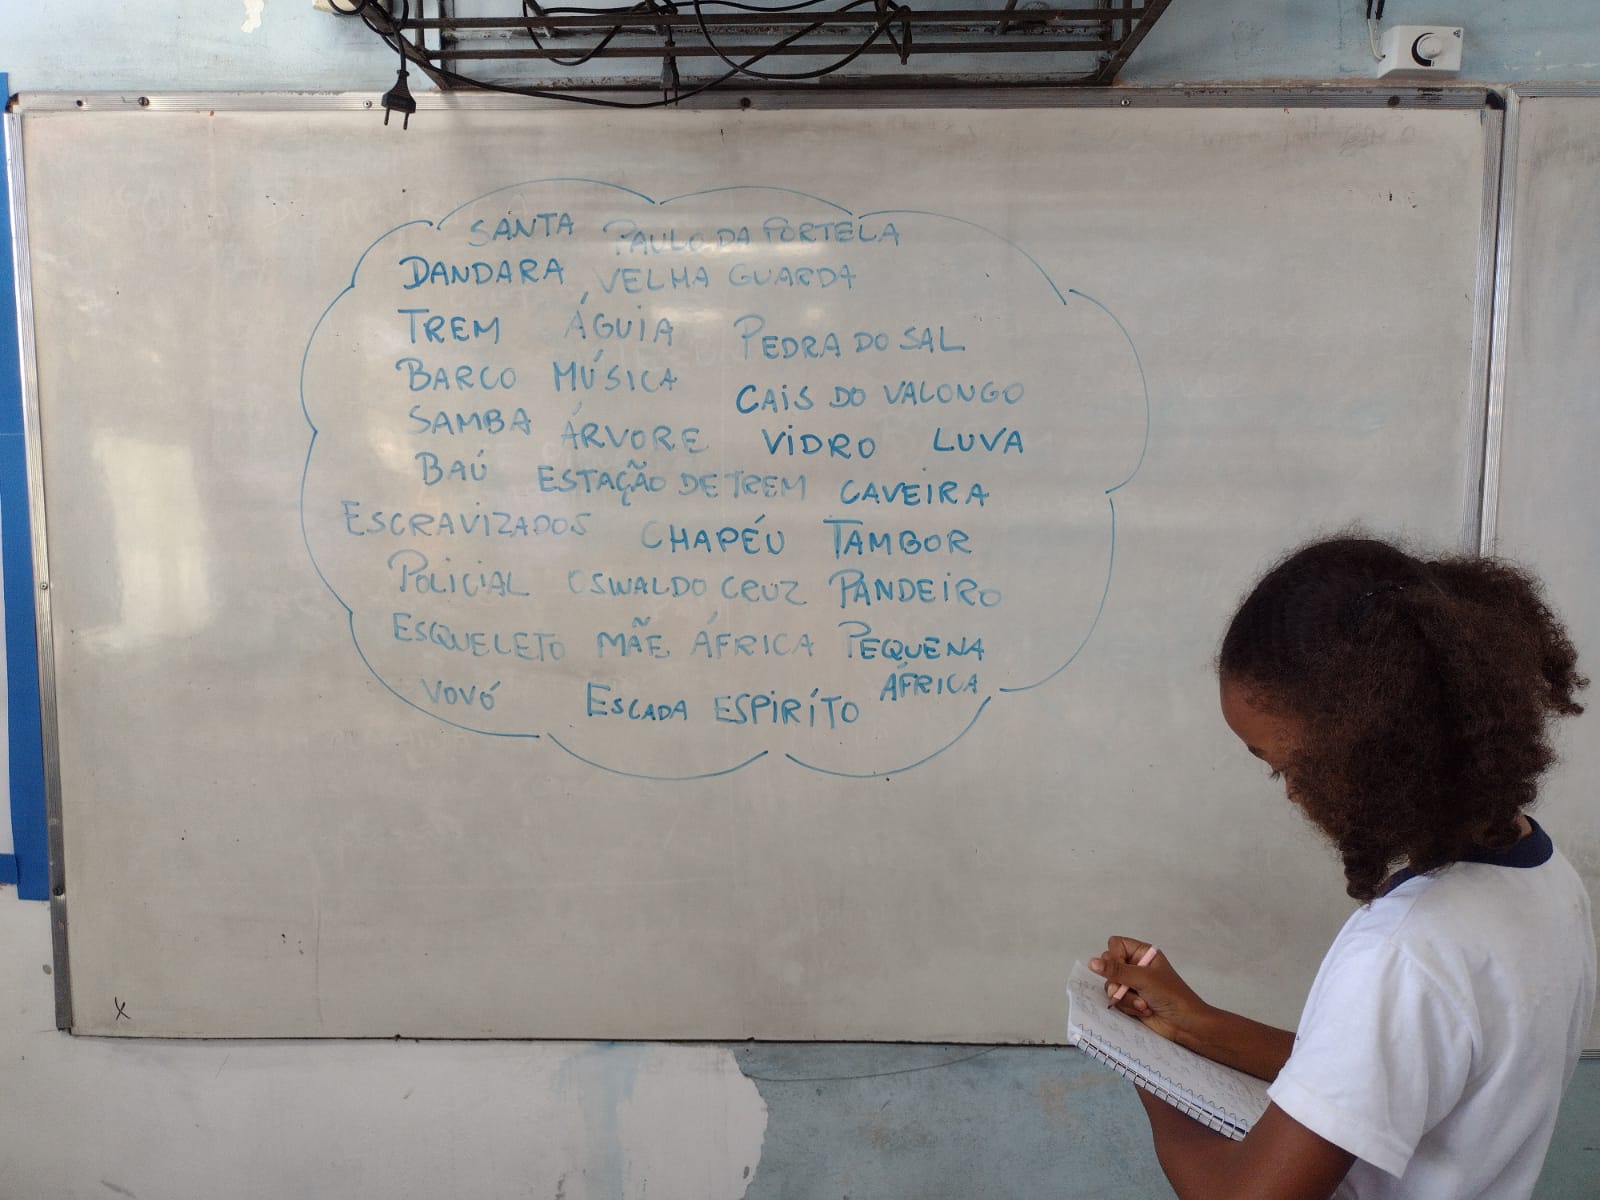 SANTA PAULO DA PORTELA
DANDARA VELHA GUARDA
TREM ÁGUIA PEDRA DO SAL
BARCO MÚSICA CAIS DO VALONGO
SAMBA ÁRVORE VIDRO LUVA
BAÚ ESTAÇÃO DE TREM CAVEIRA
ESCRAVIZADOS CHAPÉU TAMBOR
POLICIAL OSWALDO CRUZ PANDEIRO
ESQUELETO MÃE ÁFRICA PEQUENA
ÁFRICA
VOVÓ ESCADA ESPIRÍTO
X